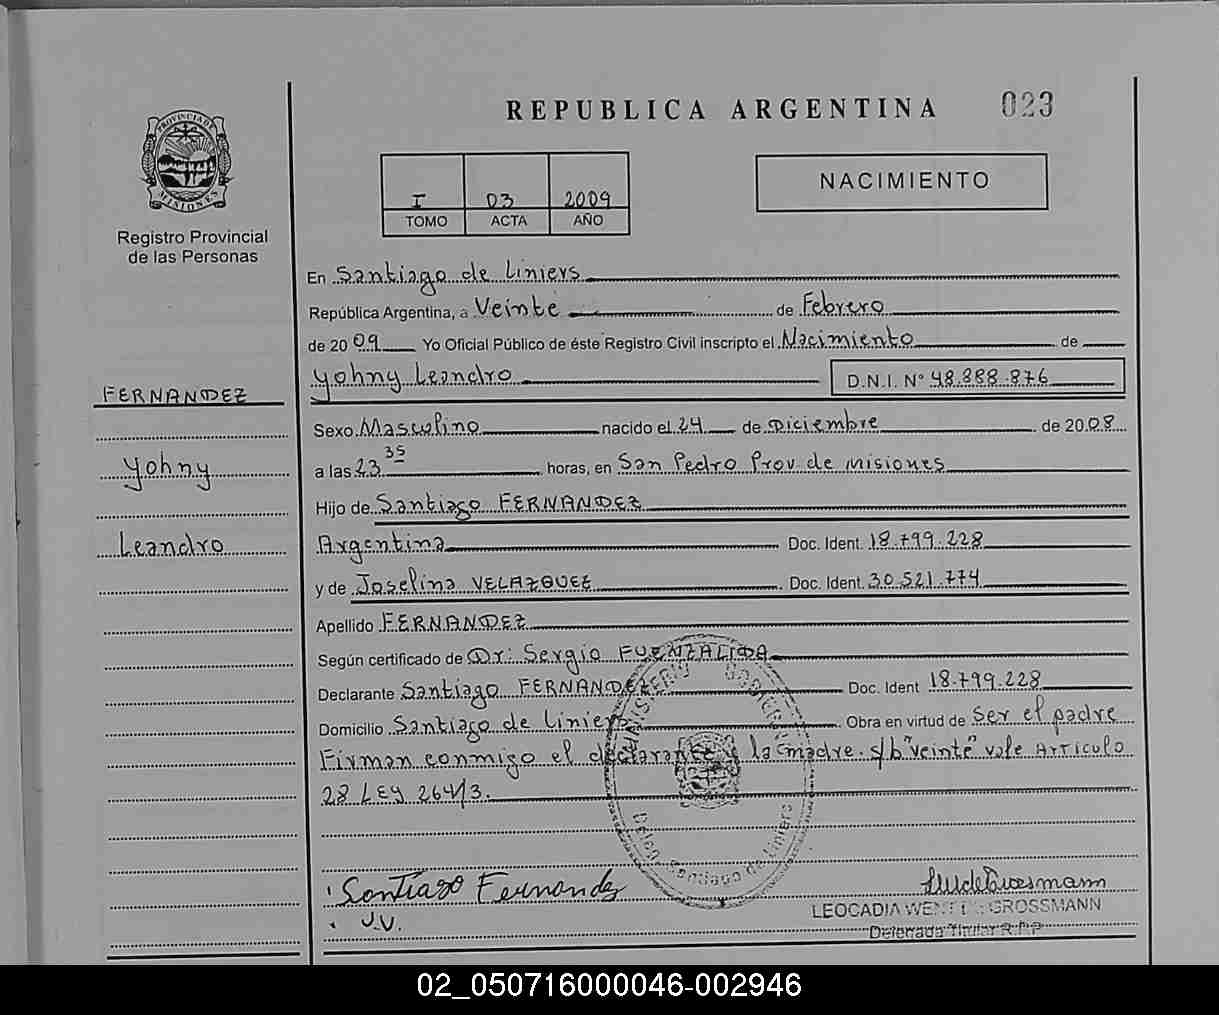 REPUBLICA ARGENTINA 023
PROVINCIA DE
MISIONES
Registro Provincial
de las Personas
I 03 2009
TOMO ACTA AÑO
NACIMIENTO
En Santiago de Liniers
República Argentina, a Veinte de Febrero
de 2009 Yo Oficial Público de éste Registro Civil inscripto el Nacimiento de
Yohny Leandro D.N.I. Nº 48.888.876
FERNANDEZ
Sexo Masculino nacido el 24 de Diciembre de 2008
Yohny
a las 23 35 horas, en San Pedro Prov. de Misiones
Hijo de Santiago FERNANDEZ
Leandro
Argentina Doc. Ident. 18.799.228
y de Joselina VELAZQUEZ Doc. Ident. 30.521.774
Apellido FERNANDEZ
Según certificado de Dr: Sergio FUENZALIDA
Declarante Santiago FERNANDEZ Doc. Ident 18.799.228
Domicilio Santiago de Liniers Obra en virtud de Ser el padre
Firman conmigo el declarante y la madre. s/b "veinte" vale Artículo
28 LEY 264/3.
MINISTERIO GOBIERNO
Deleg. Santiago de Liniers
Santiago Fernandez
J.V.
LEOCADIA WENT DE GROSSMANN
Delegada Titular R.P.P
02_050716000046-002946